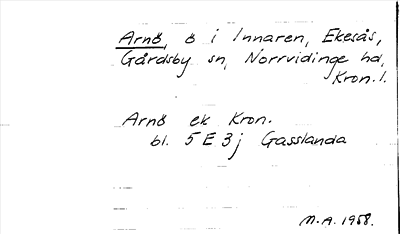 Arnö, ö i Innaren, Ekesås,
Gårdsby sn, Norrvidinge hd,
Kron. l.
Arnö ek Kron.
bl. 5 E 3 j Gasslanda
M.A. 1958.